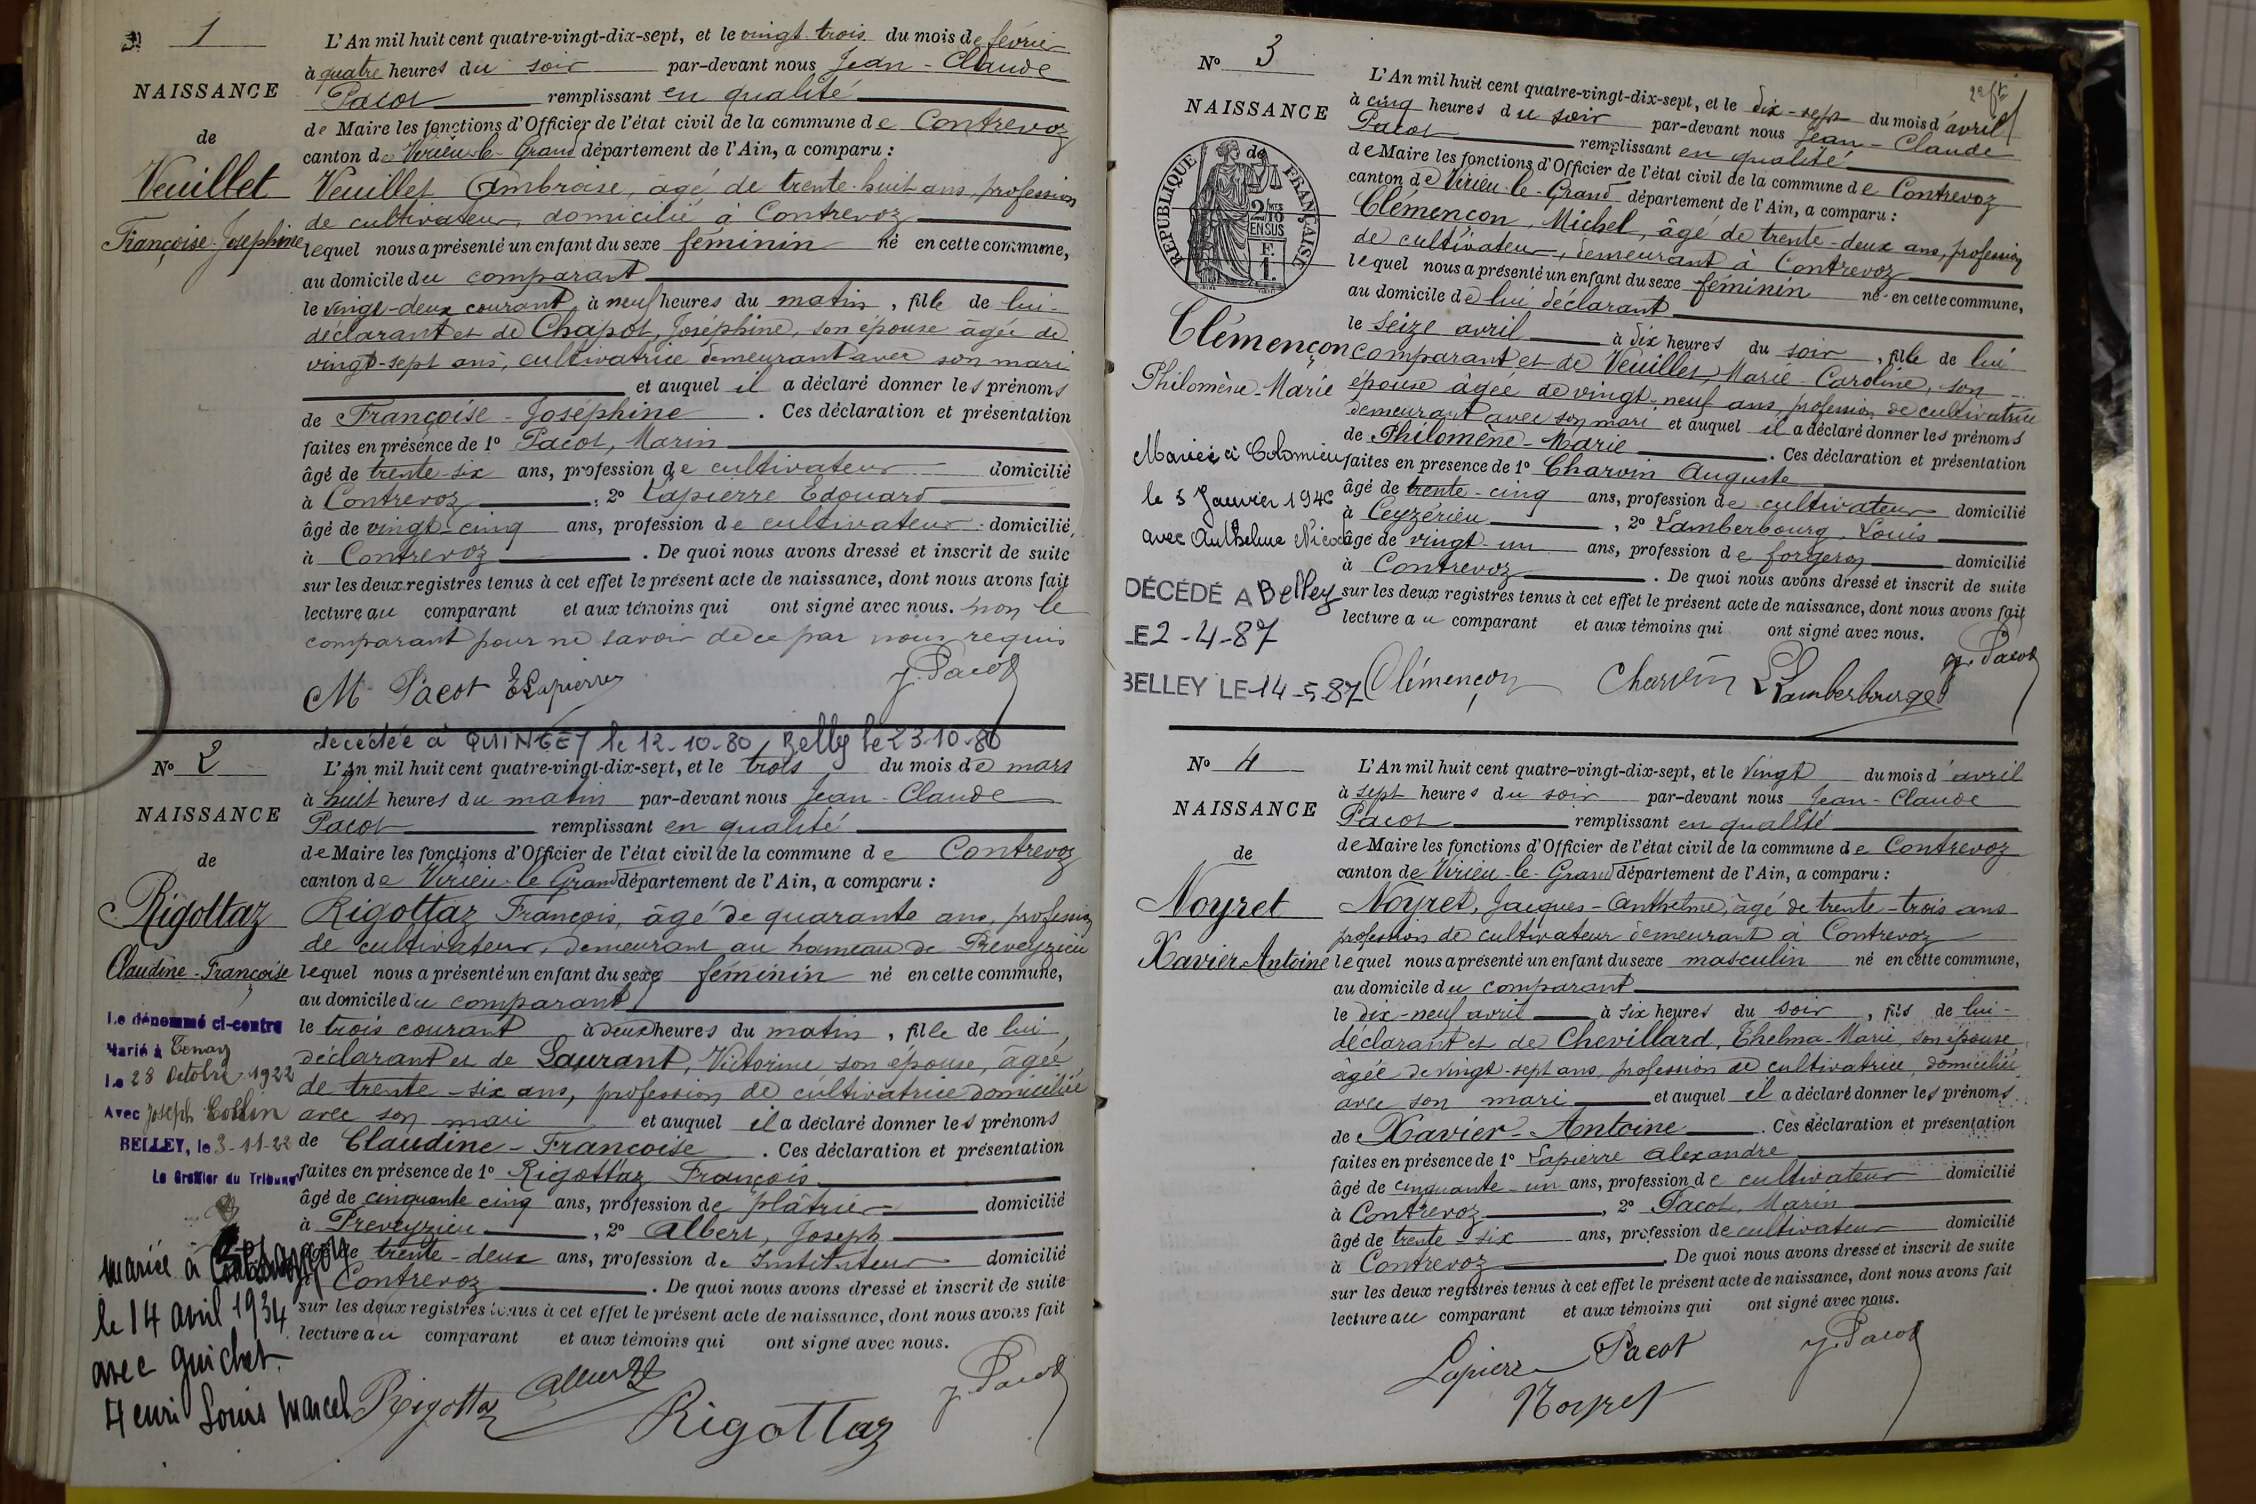 1
NAISSANCE
de
Veuillet
Françoise-Joséphine
L'An mil huit cent quatre-vingt-dix-sept, et le vingt trois du mois de février
à quatre heures du soir par-devant nous Jean-Claude
Pacot remplissant en qualité
de Maire les fonctions d'Officier de l'état civil de la commune de Contrevoz
canton de Virieu-le-Grand département de l'Ain, a comparu :
Veuillet Ambroise, âgé de trente-huit ans, profession
de cultivateur, domicilié à Contrevoz
lequel nous a présenté un enfant du sexe féminin né en cette commune,
au domicile du comparant
le vingt-deux courant, à neuf heures du matin, fille de lui-
déclarant et de Chapot, Joséphine, son épouse âgée de
vingt-sept ans, cultivatrice demeurant avec son mari
et auquel il a déclaré donner les prénoms
de Françoise-Joséphine. Ces déclaration et présentation
faites en présence de 1º Pacot, Marin
âgé de trente-six ans, profession de cultivateur domicilié
à Contrevoz, 2º Lapierre Edouard
âgé de vingt-cinq ans, profession de cultivateur domicilié,
à Contrevoz. De quoi nous avons dressé et inscrit de suite
sur les deux registres tenus à cet effet le présent acte de naissance, dont nous avons fait
lecture au comparant et aux témoins qui ont signé avec nous. non le
comparant pour ne savoir de ce par nous requis
M. Pacot E Lapierre J. Pacot
décédée à QUINGEY le 12-10-80, Belley le 23-10-80
Nº 2
NAISSANCE
de
Rigottaz
Claudine-Françoise
Le dénommé ci-contre
Marié à Tenay
Le 28 Octobre 1922
Avec Joseph Collin
BELLEY, le 3-11-22
Le Greffier du Tribunal
mariée à
le 14 avril 1934
avec Guichet
Henri Louis Marcel
L'An mil huit cent quatre-vingt-dix-sept, et le trois du mois de mars
à huit heures du matin par-devant nous Jean-Claude
Pacot remplissant en qualité
de Maire les fonctions d'Officier de l'état civil de la commune de Contrevoz
canton de Virieu-le-Grand département de l'Ain, a comparu :
Rigottaz François, âgé de quarante ans, profession
de cultivateur, demeurant au hameau de Preveyzieu
lequel nous a présenté un enfant du sexe féminin né en cette commune,
au domicile du comparant
le trois courant à deux heures du matin, fille de lui,
déclarant et de Laurant, Victorine son épouse, âgée
de trente-six ans, profession de cultivatrice domiciliée
avec son mari et auquel il a déclaré donner les prénoms
de Claudine-Françoise. Ces déclaration et présentation
faites en présence de 1º Rigottaz François
âgé de cinquante cinq ans, profession de plâtrier domicilié
à Preveyzieu, 2º Albert, Joseph
âgé de trente-deux ans, profession de Instituteur domicilié
à Contrevoz. De quoi nous avons dressé et inscrit de suite
sur les deux registres tenus à cet effet le présent acte de naissance, dont nous avons fait
lecture au comparant et aux témoins qui ont signé avec nous.
Rigottaz Albert Rigottaz J. Pacot
Nº 3
NAISSANCE
de
REPUBLIQUE FRANÇAISE
2/10 EN SUS
F. 1.
Clémençon
Philomène-Marie
Mariée à Colomieu
le 5 Janvier 1946
avec Anthelme Nicod
DÉCÉDÉ A Belley
LE 2-4-87
BELLEY LE 14-5-87
L'An mil huit cent quatre-vingt-dix-sept, et le dix-sept du mois d'avril
à cinq heures du soir par-devant nous Jean-Claude
Pacot remplissant en qualité
de Maire les fonctions d'Officier de l'état civil de la commune de Contrevoz
canton de Virieu-le-Grand département de l'Ain, a comparu :
Clémençon, Michel, âgé de trente-deux ans, profession
de cultivateur, demeurant à Contrevoz
lequel nous a présenté un enfant du sexe féminin né en cette commune,
au domicile de lui déclarant
le seize avril à dix heures du soir, fille de lui
comparant et de Veuillet, Marie-Caroline, son
épouse âgée de vingt-neuf ans, profession de cultivatrice
demeurant avec son mari et auquel il a déclaré donner les prénoms
de Philomène-Marie. Ces déclaration et présentation
faites en présence de 1º Charvin Auguste
âgé de trente-cinq ans, profession de cultivateur domicilié
à Ceyzérieu, 2º Lamberbourg, Louis
âgé de vingt un ans, profession de forgeron domicilié
à Contrevoz. De quoi nous avons dressé et inscrit de suite
sur les deux registres tenus à cet effet le présent acte de naissance, dont nous avons fait
lecture au comparant et aux témoins qui ont signé avec nous.
Clémençon Charvin L Lamberbourg J. Pacot
Nº 4
NAISSANCE
de
Noyret
Xavier-Antoine
L'An mil huit cent quatre-vingt-dix-sept, et le vingt du mois d'avril
à sept heures du soir par-devant nous Jean-Claude
Pacot remplissant en qualité
de Maire les fonctions d'Officier de l'état civil de la commune de Contrevoz
canton de Virieu-le-Grand département de l'Ain, a comparu :
Noyret, Jacques-Anthelme, âgé de trente-trois ans
profession de cultivateur demeurant à Contrevoz
lequel nous a présenté un enfant du sexe masculin né en cette commune,
au domicile du comparant
le dix-neuf avril à six heures du soir, fils de lui-
déclarant et de Chevillard, Thelma-Marie, son épouse
âgée de vingt-sept ans, profession de cultivatrice, domiciliée
avec son mari et auquel il a déclaré donner les prénoms
de Xavier-Antoine. Ces déclaration et présentation
faites en présence de 1º Lapierre Alexandre
âgé de cinquante-un ans, profession de cultivateur domicilié
à Contrevoz, 2º Pacot, Marin
âgé de trente-six ans, profession de cultivateur domicilié
à Contrevoz. De quoi nous avons dressé et inscrit de suite
sur les deux registres tenus à cet effet le présent acte de naissance, dont nous avons fait
lecture au comparant et aux témoins qui ont signé avec nous.
Lapierre Pacot J. Pacot
Noyret